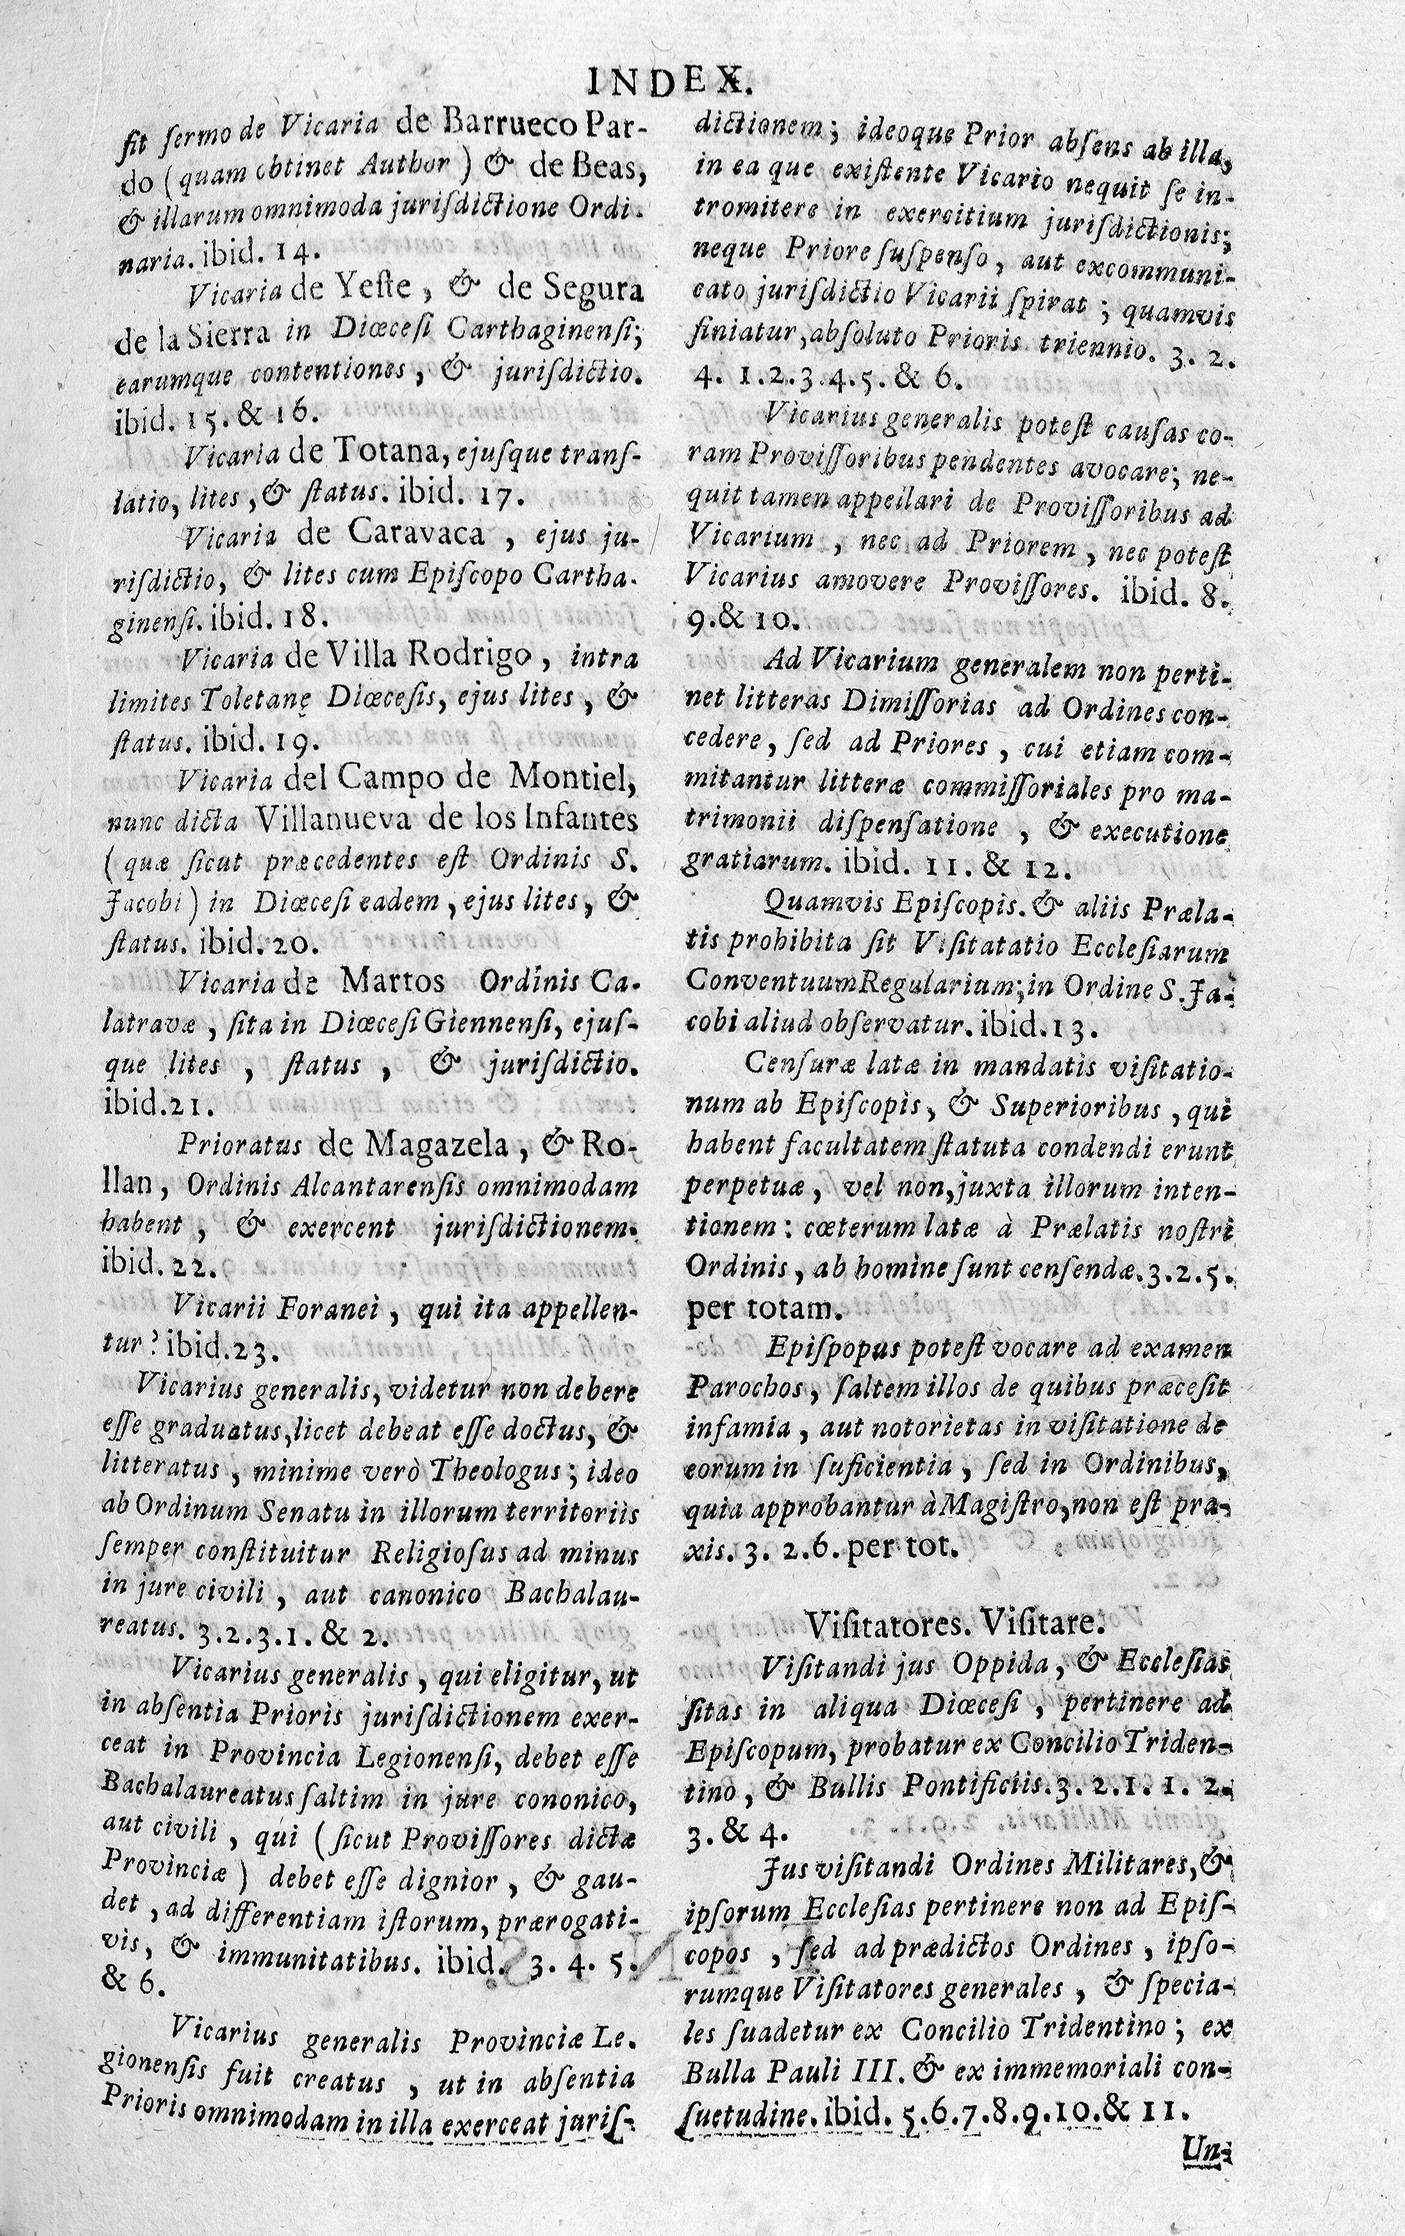 INDEX.
ſit ſermo de Vicaria de Barrueco Par-
do (quam obtinet Author) & de Beas,
& illarum omnimoda juriſdictione Ordi-
naria. ibid. 14.
Vicaria de Yeſte, & de Segura
de la Sierra in Diœceſi Carthaginenſi;
earumque contentiones, & juriſdictio.
ibid. 15. & 16.
Vicaria de Totana, ejuſque tranſ-
latio, lites, & ſtatus. ibid. 17.
Vicaria de Caravaca, ejus ju-
riſdictio, & lites cum Epiſcopo Cartha-
ginenſi. ibid. 18.
Vicaria de Villa Rodrigo, intra
limites Toletanę Diœceſis, ejus lites, &
ſtatus. ibid. 19.
Vicaria del Campo de Montiel,
nunc dicta Villanueva de los Infantes
(quæ ſicut præcedentes eſt Ordinis S.
Jacobi) in Diœceſi eadem, ejus lites, &
ſtatus. ibid. 20.
Vicaria de Martos Ordinis Ca-
latravæ, ſita in Diœceſi Giennenſi, ejuſ-
que lites, ſtatus, & juriſdictio.
ibid.21.
Prioratus de Magazela, & Ro-
llan, Ordinis Alcantarenſis omnimodam
habent, & exercent juriſdictionem.
ibid. 22.
Vicarii Foranei, qui ita appellen-
tur? ibid.23.
Vicarius generalis, videtur non debere
eſſe graduatus, licet debeat eſſe doctus, &
litteratus, minime verò Theologus; ideo
ab Ordinum Senatu in illorum territoriis
ſemper conſtituitur Religioſus ad minus
in jure civili, aut canonico Bachalau-
reatus. 3.2.3.1. & 2.
Vicarius generalis, qui eligitur, ut
in abſentia Prioris juriſdictionem exer-
ceat in Provincia Legionenſi, debet eſſe
Bachalaureatus ſaltim in jure cononico,
aut civili, qui (ſicut Proviſſores dictæ
Provinciæ) debet eſſe dignior, & gau-
det, ad differentiam iſtorum, prærogati-
vis, & immunitatibus. ibid. 3. 4. 5.
& 6.
Vicarius generalis Provinciæ Le-
gionenſis fuit creatus, ut in abſentia
Prioris omnimodam in illa exerceat juriſ-
dictionem; ideoque Prior abſens ab illa,
in ea que exiſtente Vicario nequit ſe in-
tromitere in exercitium juriſdictionis;
neque Priore ſuſpenſo, aut excommuni-
cato juriſdictio Vicarii ſpirat; quamvis
finiatur, abſoluto Prioris triennio. 3. 2.
4. 1.2.3.4.5. & 6.
Vicarius generalis poteſt cauſas co-
ram Proviſſoribus pendentes avocare; ne-
quit tamen appellari de Proviſſoribus ad
Vicarium, nec ad Priorem, nec poteſt
Vicarius amovere Proviſſores. ibid. 8.
9. & 10.
Ad Vicarium generalem non perti-
net litteras Dimiſſorias ad Ordines con-
cedere, ſed ad Priores, cui etiam com-
mitantur litteræ commiſſoriales pro ma-
trimonii diſpenſatione, & executione
gratiarum. ibid. 11. & 12.
Quamvis Epiſcopis. & aliis Præla-
tis prohibita ſit Viſitatatio Eccleſiarum
Conventuum Regularium; in Ordine S. Ja-
cobi aliud obſervatur. ibid. 13.
Cenſuræ latæ in mandatis viſitatio-
num ab Epiſcopis, & Superioribus, qui
habent facultatem ſtatuta condendi erunt
perpetuæ, vel non, juxta illorum inten-
tionem: cœterum latæ à Prælatis noſtri
Ordinis, ab homine ſunt cenſendæ. 3.2.5.
per totam.
Epiſpopus poteſt vocare ad examen
Parochos, ſaltem illos de quibus præceſit
infamia, aut notorietas in viſitatione de
eorum in ſuficientia, ſed in Ordinibus,
quia approbantur à Magiſtro, non eſt pra-
xis. 3. 2.6. per tot.
Viſitatores. Viſitare.
Viſitandi jus Oppida, & Eccleſias
ſitas in aliqua Diœceſi, pertinere ad
Epiſcopum, probatur ex Concilio Triden-
tino, & Bullis Pontificiis. 3. 2.1. 1. 2.
3. & 4.
Jus viſitandi Ordines Militares, &
ipſorum Eccleſias pertinere non ad Epiſ-
copos, ſed ad prædictos Ordines, ipſo-
rumque Viſitatores generales, & ſpecia-
les ſuadetur ex Concilio Tridentino; ex
Bulla Pauli III. & ex immemoriali con-
ſuetudine. ibid. 5.6.7.8.9.10.& 11.
Un-